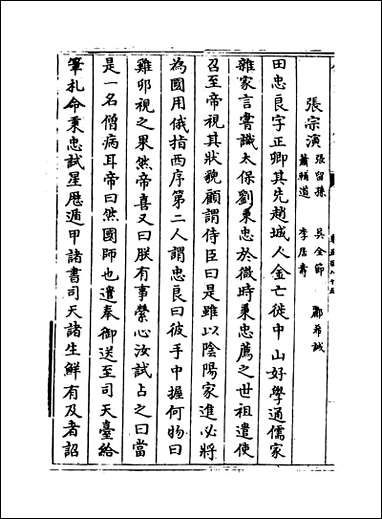 張宗演 張留孫 吳全節 酈希誠
蕭輔道 李居壽
田忠良字正卿其先趙城人金亡徙中山好學通儒家
雜家言嘗識太保劉秉忠於微時秉忠薦之世祖遣使
召至帝視其狀貌顧謂侍臣曰是雖以陰陽家進必將
為國用俄指西序第二人謂忠良曰彼手中握何物曰
雞卵視之果然帝喜又曰朕有事縈心汝試占之曰當
是一名僧病耳帝曰然國師也遣奉御送至司天臺給
筆札命秉忠試星歷遁甲諸書司天諸生鮮有及者詔